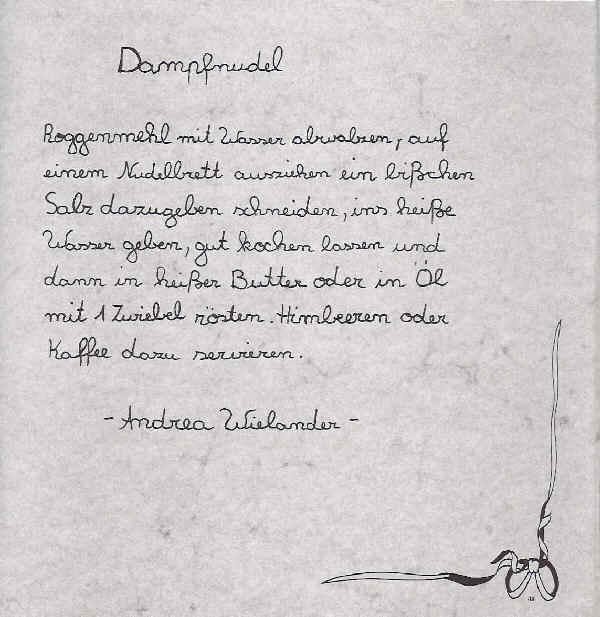 Dampfnudel
Roggenmehl mit Wasser abwalzen, auf
einem Nudelbrett ausziehen ein bißchen
Salz dazugeben schneiden, ins heiße
Wasser geben, gut kochen lassen und
dann in heißer Butter oder in Öl
mit 1 Zwiebel rösten. Himbeeren oder
Kaffee dazu servieren.
- Andrea Wielander -